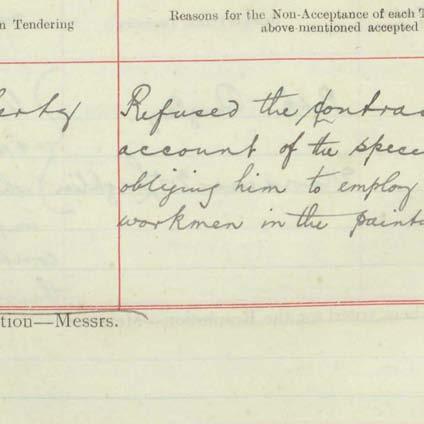 n Tendering
Reasons for the Non-Acceptance of each T
above-mentioned accepted
erty
Refused the contrac
account of the speci
obliging him to employ
workmen in the painti
tion—Messrs.